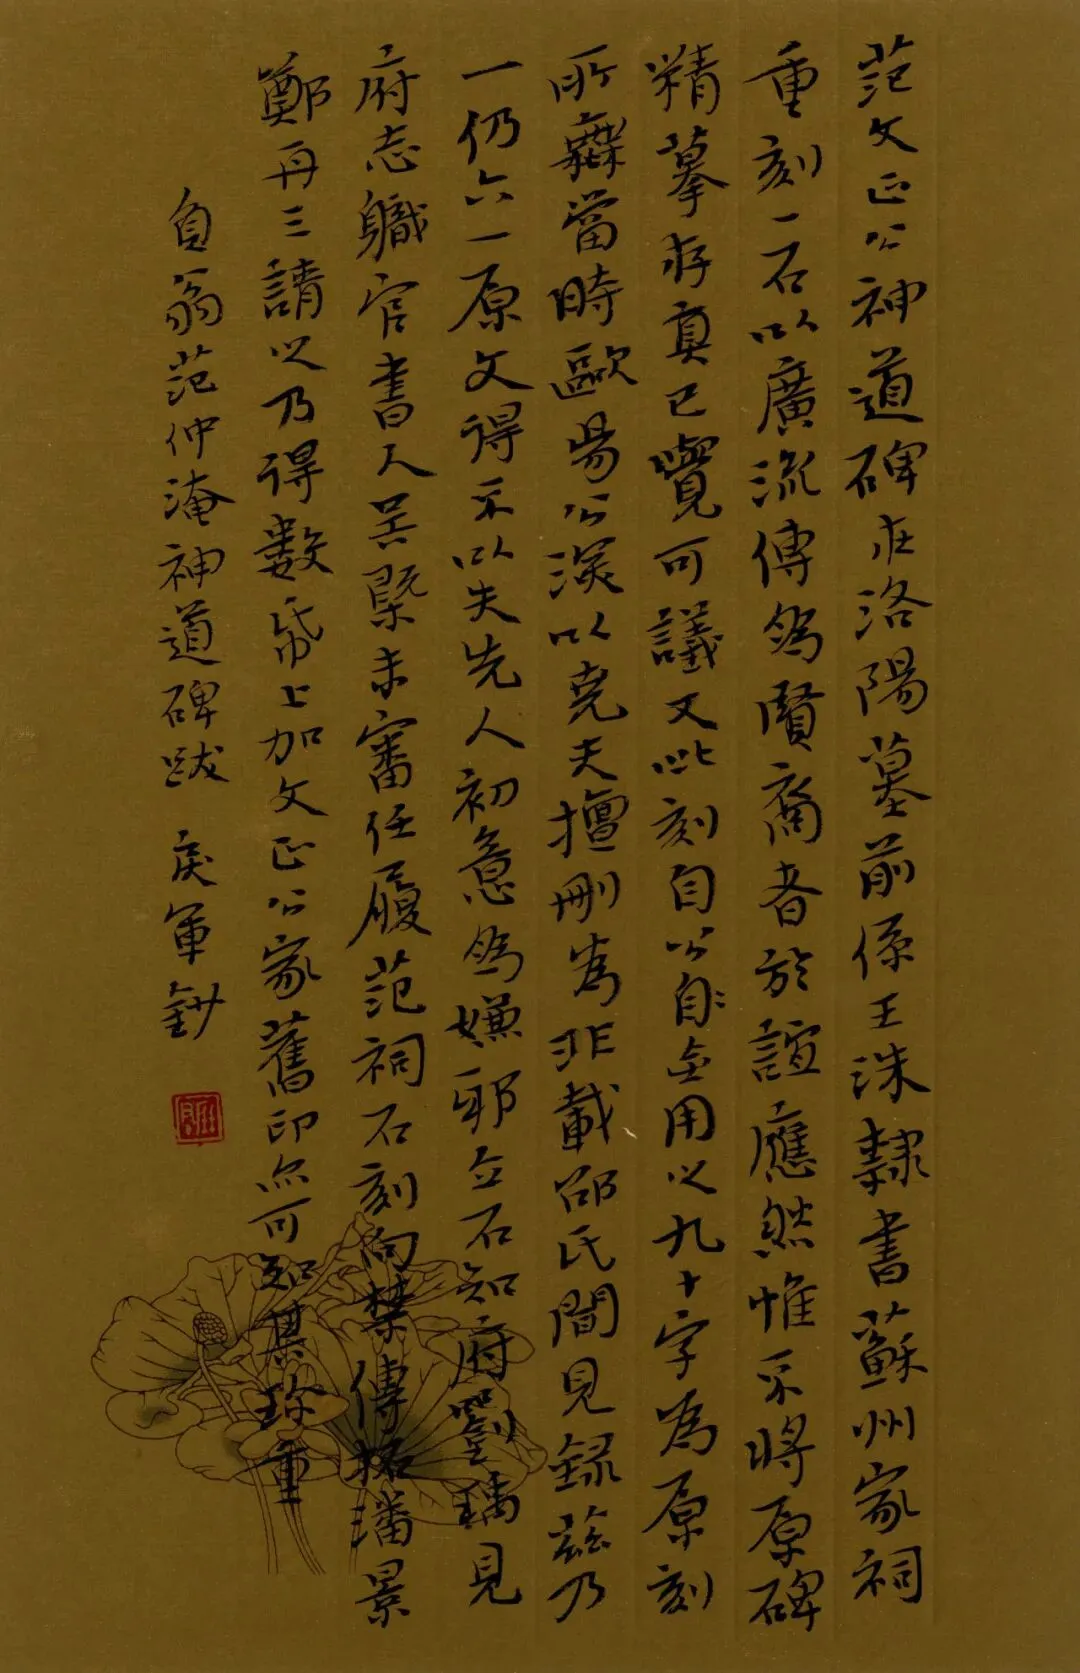 范文正公神道碑在洛陽墓前係王洙隸書蘇州家祠
重刻一石以廣流傳為賢裔者於誼應然惟不將原碑
精摹存真已覺可議又此刻自公自坐用之九十字為原刻
所無當時歐陽公深以堯夫擅刪為非載邵氏聞見録茲乃
一仍六一原文得不以失先人初意為嫌耶立石知府劉瑀見
府志職官書人吳槩未審任履范祠石刻向禁傳拓潘景
鄭再三請之乃得數帋上加文正公家舊印亦可知其珍重
負翁范仲淹神道碑跋 軍鈔